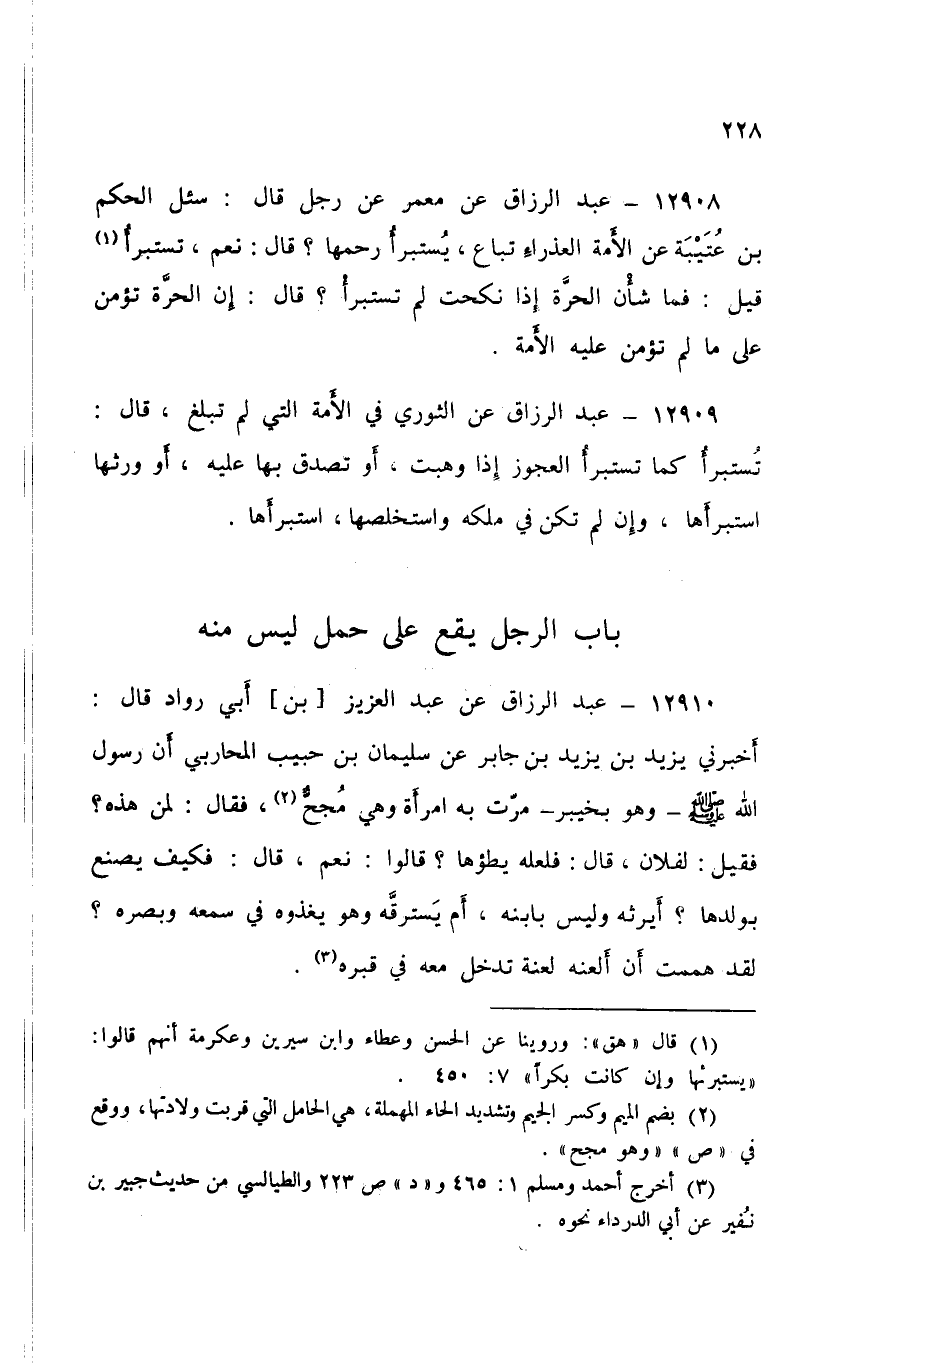 ٢٢٨
١٢٩٠٨ – عبد الرزاق عن معمر عن رجل قال : سئل الحكم
بن عُتَيْبَة عن الأَمة العذراءِ تباع ، يُستبرأُ رحمها ؟ قال : نعم ، تستبرأُ (١)
قيل : فما شأْن الحرَّة إِذا نكحت لم تستبرأْ ؟ قال : إِن الحرَّة تؤمن
على ما لم تؤمن عليه الأَمة .
١٢٩٠٩ – عبد الرزاق عن الثوري في الأَمة التي لم تبلغ ، قال :
تُستبرأُ كما تستبرأُ العجوز إِذا وهبت ، أَو تصدق بها عليه ، أَو ورثها
استبرأَها ، وإِن لم تكن في ملكه واستخلصها ، استبرأَها .
باب الرجل يقع على حمل ليس منه
١٢٩١٠ – عبد الرزاق عن عبد العزيز [ بن ] أَبي رواد قال :
أَخبرني يزيد بن يزيد بن جابر عن سليمان بن حبيب المحاربي أَن رسول
الله ﷺ – وهو بخيبر – مرّت به امرأَة وهي مُجحٌّ (٢) ، فقال : لمن هذه؟
فقيل : لفلان ، قال : فلعله يطؤها ؟ قالوا : نعم ، قال : فكيف يصنع
بولدها ؟ أَيرثه وليس بابنه ، أَم يَسترقَّه وهو يغذوه في سمعه وبصره ؟
لقد هممت أَن أَلعنه لعنة تدخل معه في قبره (٣) .
(١) قال «هق»: وروينا عن الحسن وعطاء وابن سيرين وعكرمة أنهم قالوا:
«يستبرئها وإن كانت بكراً» ٧: ٤٥٠ .
(٢) بضم الميم وكسر الجيم وتشديد الحاء المهملة، هي الحامل التي قربت ولادتها، ووقع
في «ص» «وهو مجح» .
(٣) أخرج أحمد ومسلم ١: ٤٦٥ و«د» ص ٢٢٣ والطيالسي من حديث جبير بن
نُفير عن أبي الدرداء نحوه .